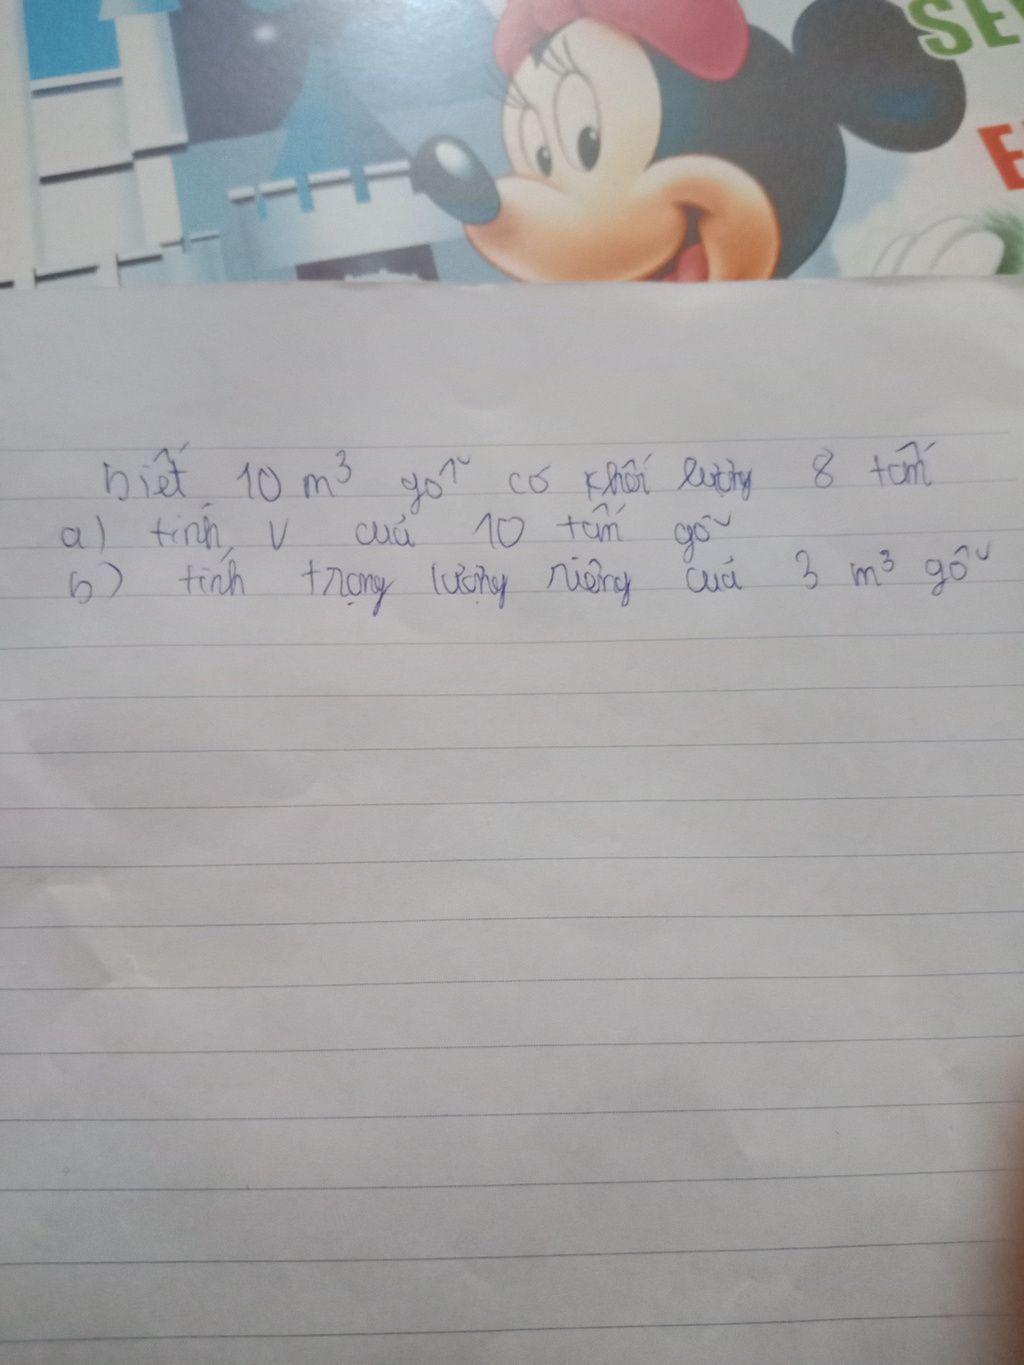 SE
E
biết 10 m³ gỗ có khối lượng 8 tấn
a) tính V cuả 10 tấn gỗ
b) tính trọng lượng riêng cuả 3 m³ gỗ